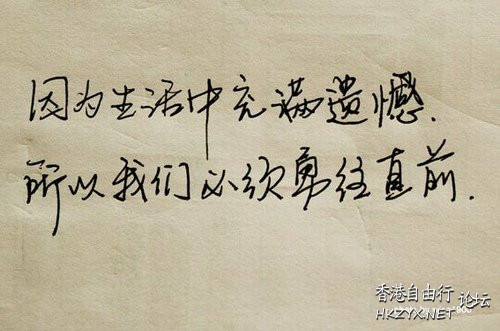 因为生活中充满遗憾.
所以我们必须勇往直前.
香港自由行
HKZYX.NET论坛